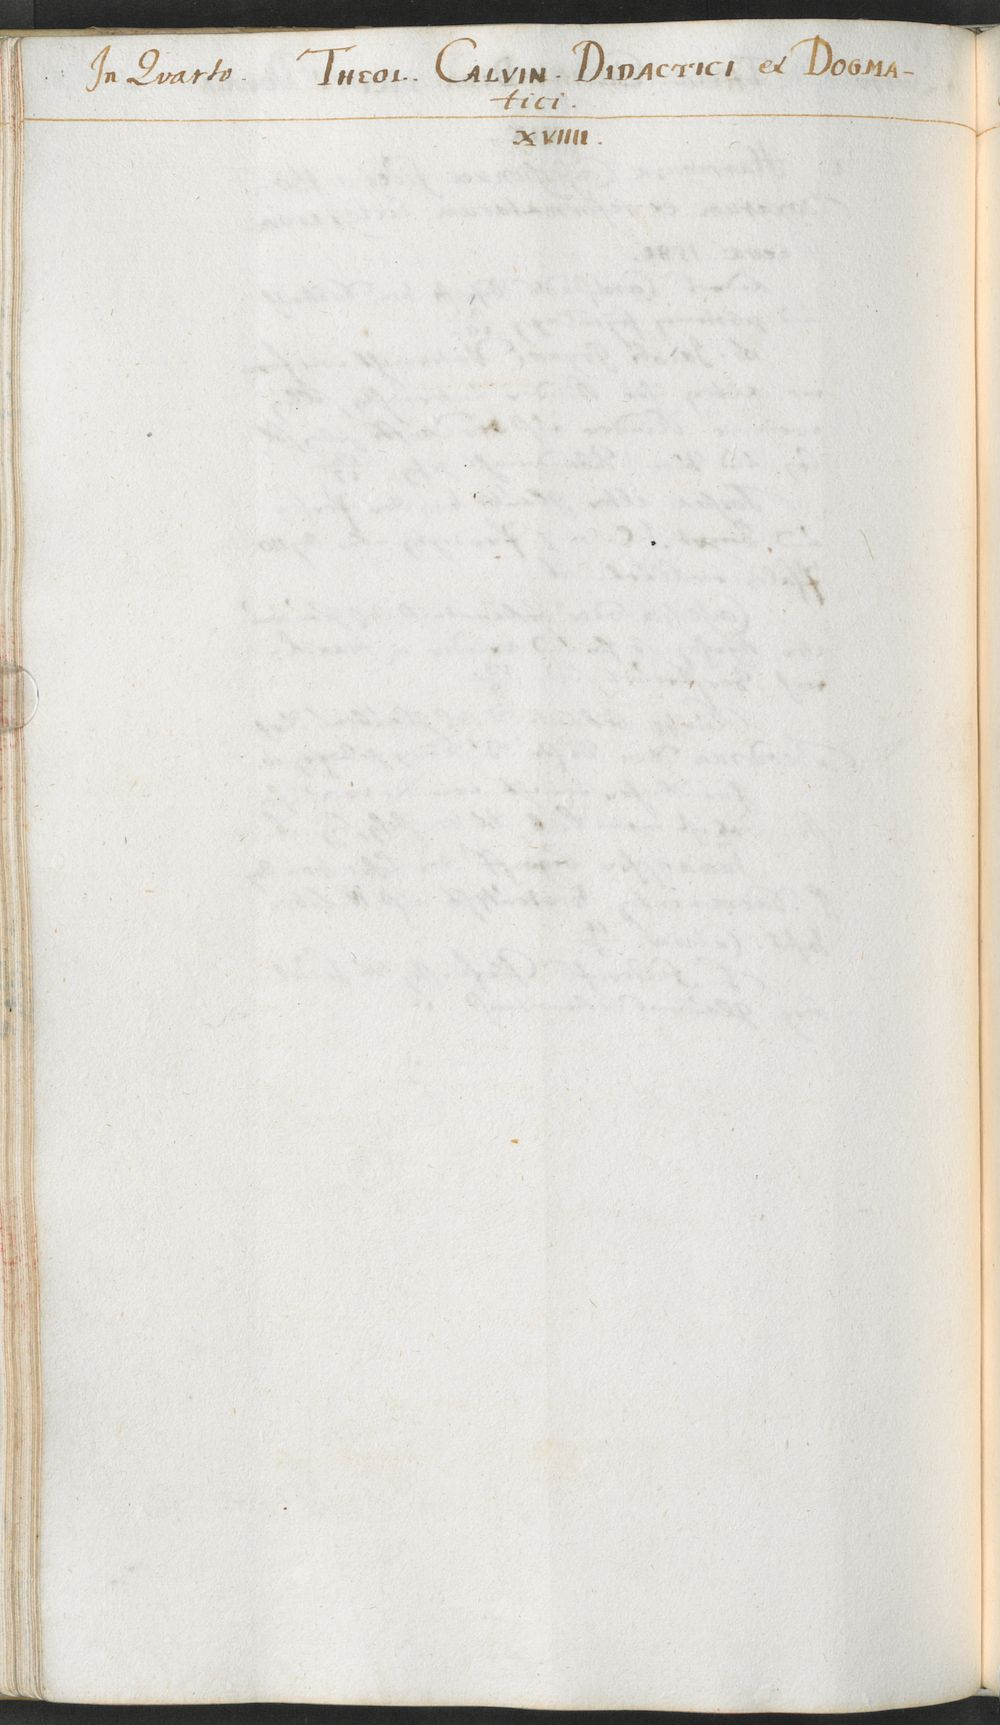 In Qvarto. THEOL. CALVIN. DIDACTICI et DOGMA-
tici.
XVIIII.